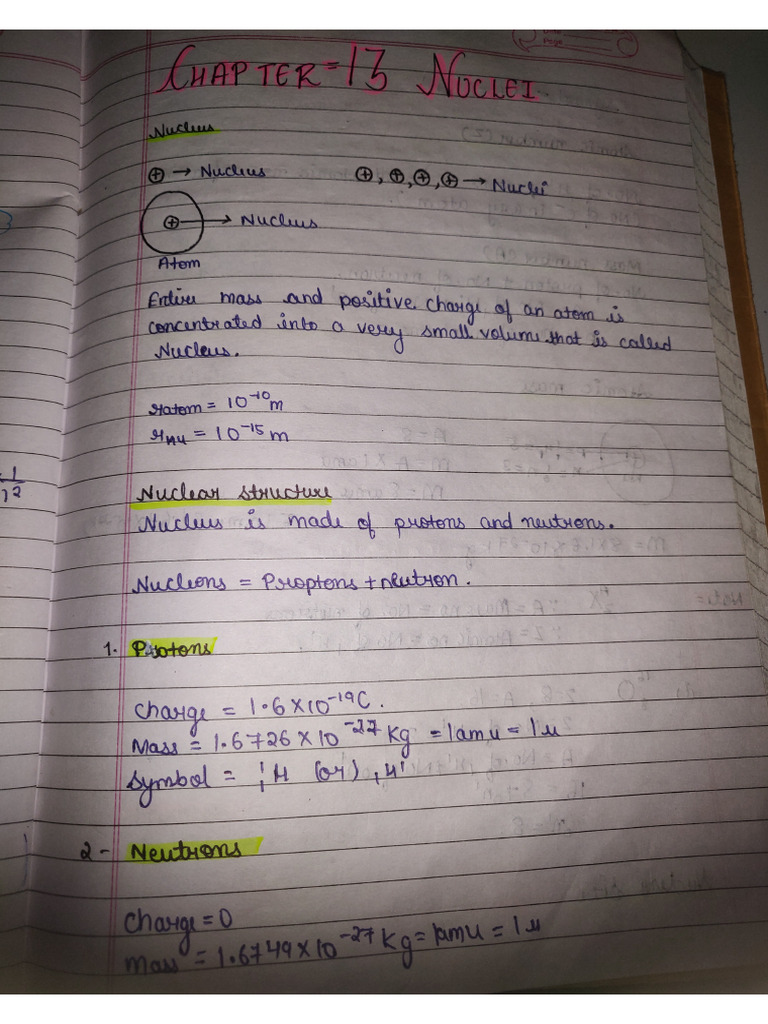 CHAPTER = 13 NUCLEI
Nucleus
⊕ → Nucleus ⊕, ⊕, ⊕, ⊕ → Nuclei
⊕ → Nucleus
Atom
Entire mass and positive charge of an atom is
concentrated into a very small volume that is called
Nucleus.
ratom = 10⁻¹⁰ m
rNu = 10⁻¹⁵ m
Nuclear structure
Nucleus is made of protons and neutrons.
Nucleons = Proptons + neutron.
1. Protons
Charge = 1.6 × 10⁻¹⁹C.
Mass = 1.6726 × 10⁻²⁷ Kg = 1amu = 1u
Symbol = ¹₁H (or) ₁H¹
2- Neutrons
Charge = 0
Mass = 1.6749 × 10⁻²⁷ Kg = 1amu = 1u